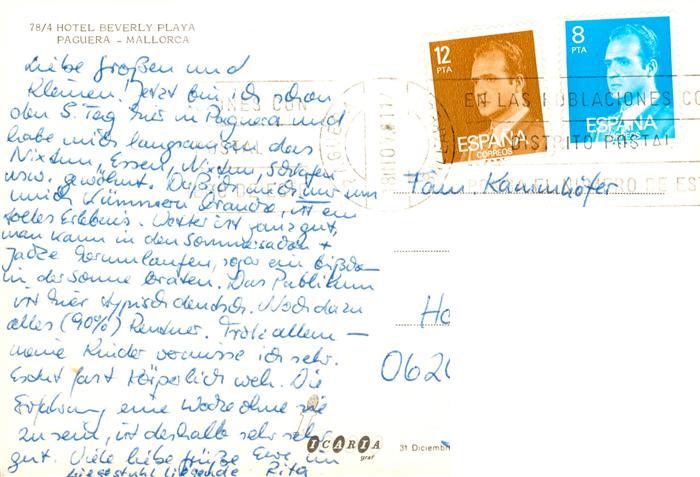 78/4 HOTEL BEVERLY PLAYA
PAGUERA - MALLORCA
Liebe Großen und
Kleinen! Jetzt bin ich schon
den 5. Tag hier in Paguera und
habe mich langsam an das
Nixtun, Essen, Nixtun, Schlafen
usw. gewöhnt. Daß ich mich nur um
mich kümmern brauche, ist ein
tolles Erlebnis. Wetter ist ganz gut,
man kann in den Sommersachen +
Jacke herumlaufen, sogar ein bißchen
in der Sonne braten. Das Publikum
ist hier typisch deutsch. Noch dazu
alles (90%) Rentner. Trotz allem —
meine Kinder vermisse ich sehr.
Es tut fast körperlich weh. Die
Erfahrung, eine Woche ohne sie
zu sein, ist deshalb sehr sehr
gut. Viele liebe Grüße Eure im
Liegestuhl liegende Rita
12
PTA
ESPAÑA
CORREOS
8
PTA
ESPAÑA
CON
EN LAS POBLACIONES CO
DISTRITO POSTAL
NUMERO DE EST
Fam Kammhöfer
Ho
0620
ICARIA
graf
31 Diciembr